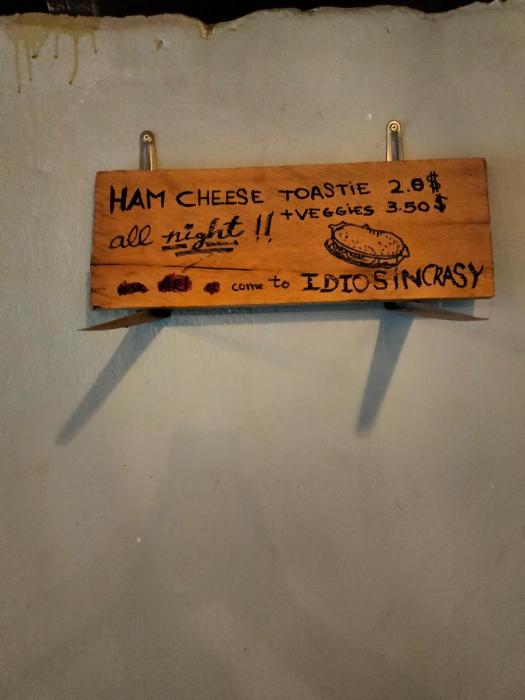 HAM CHEESE TOASTIE 2.8$
+VEGGIES 3.50$
all night !!
come to IDIOSINCRASY